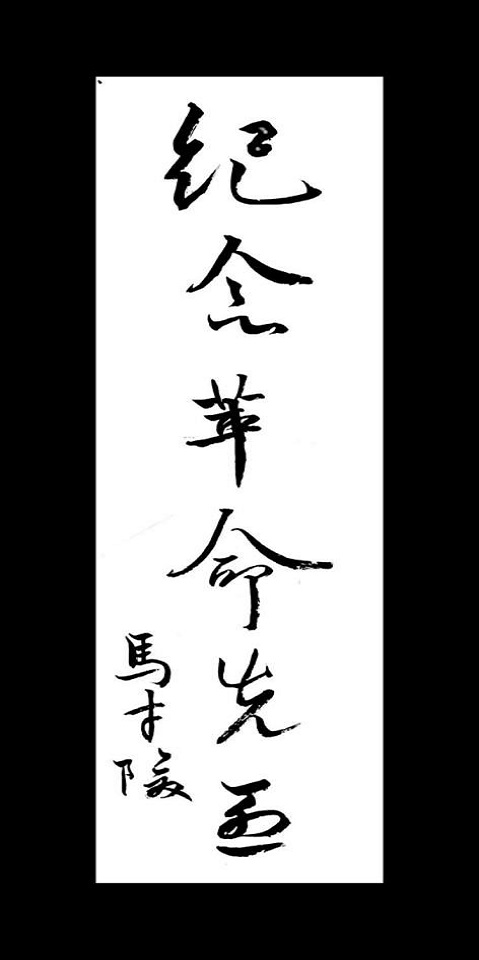 纪念革命先烈
馬才陵